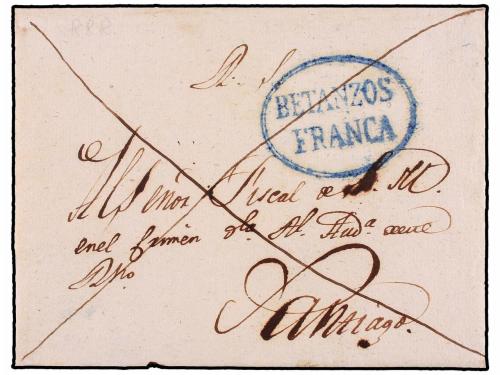 RRR
R. S.
BETANZOS
FRANCA
Al Señor Fiscal de S. M.
en el Crimen de la Rl. Audª de este
Rno.
Santiago.